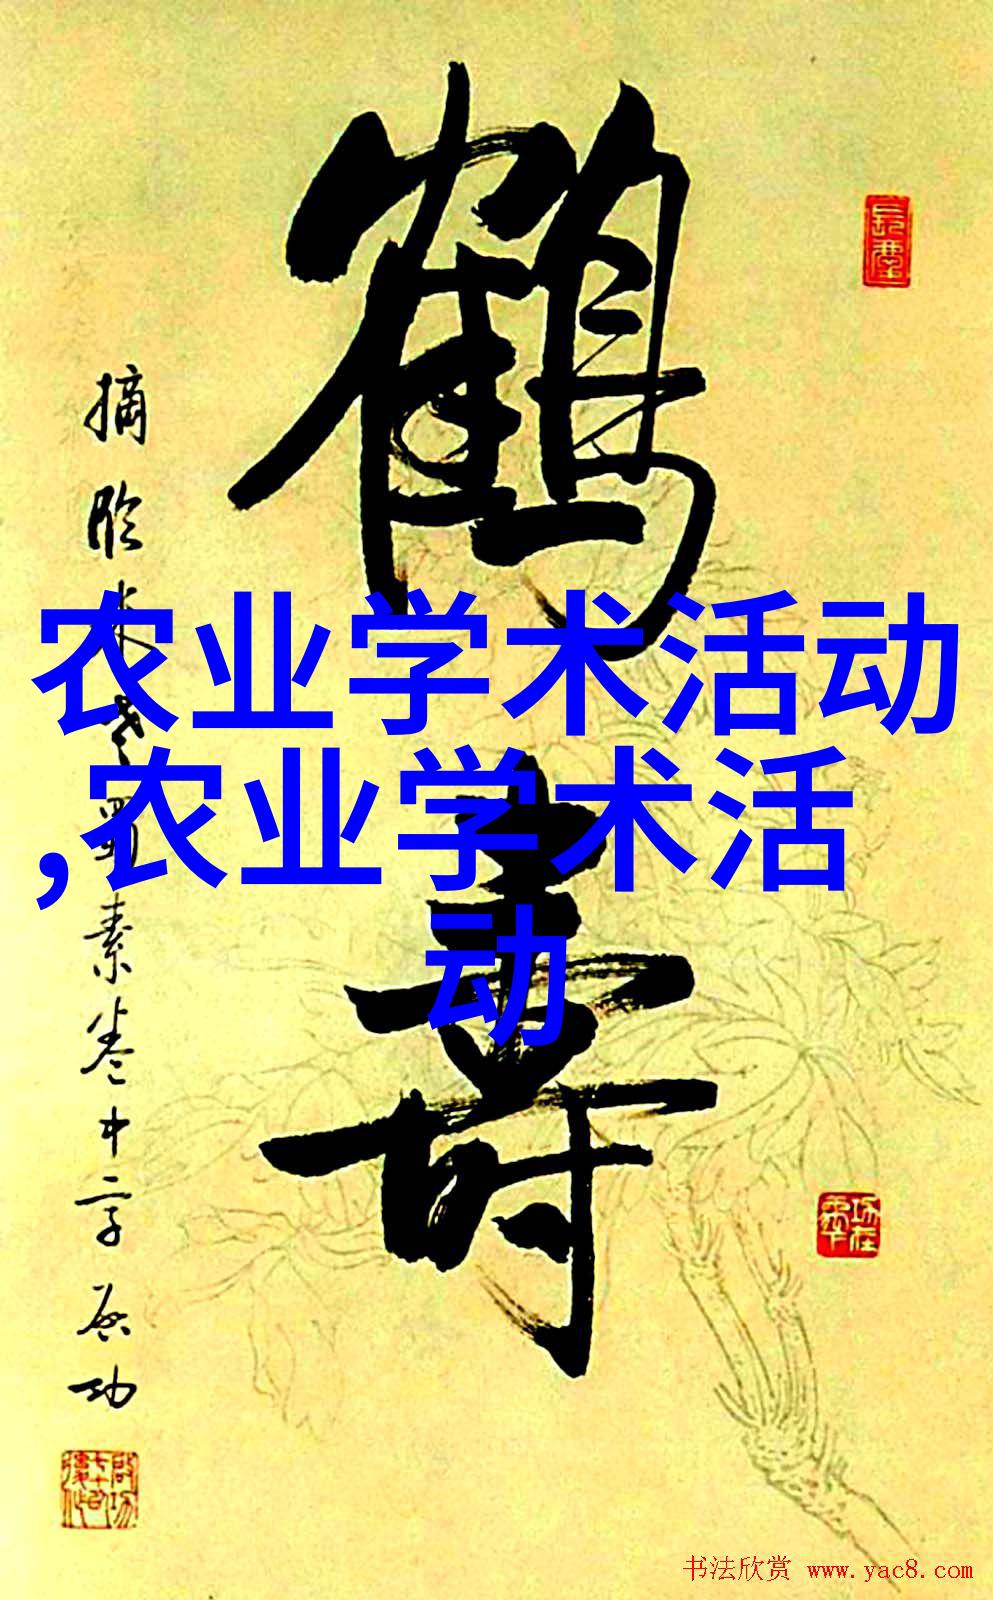 鹤寿
摘临米老蜀素卷中字 启功
农业学术活动
,农业学术活
动
书法欣赏 www.yac8.com